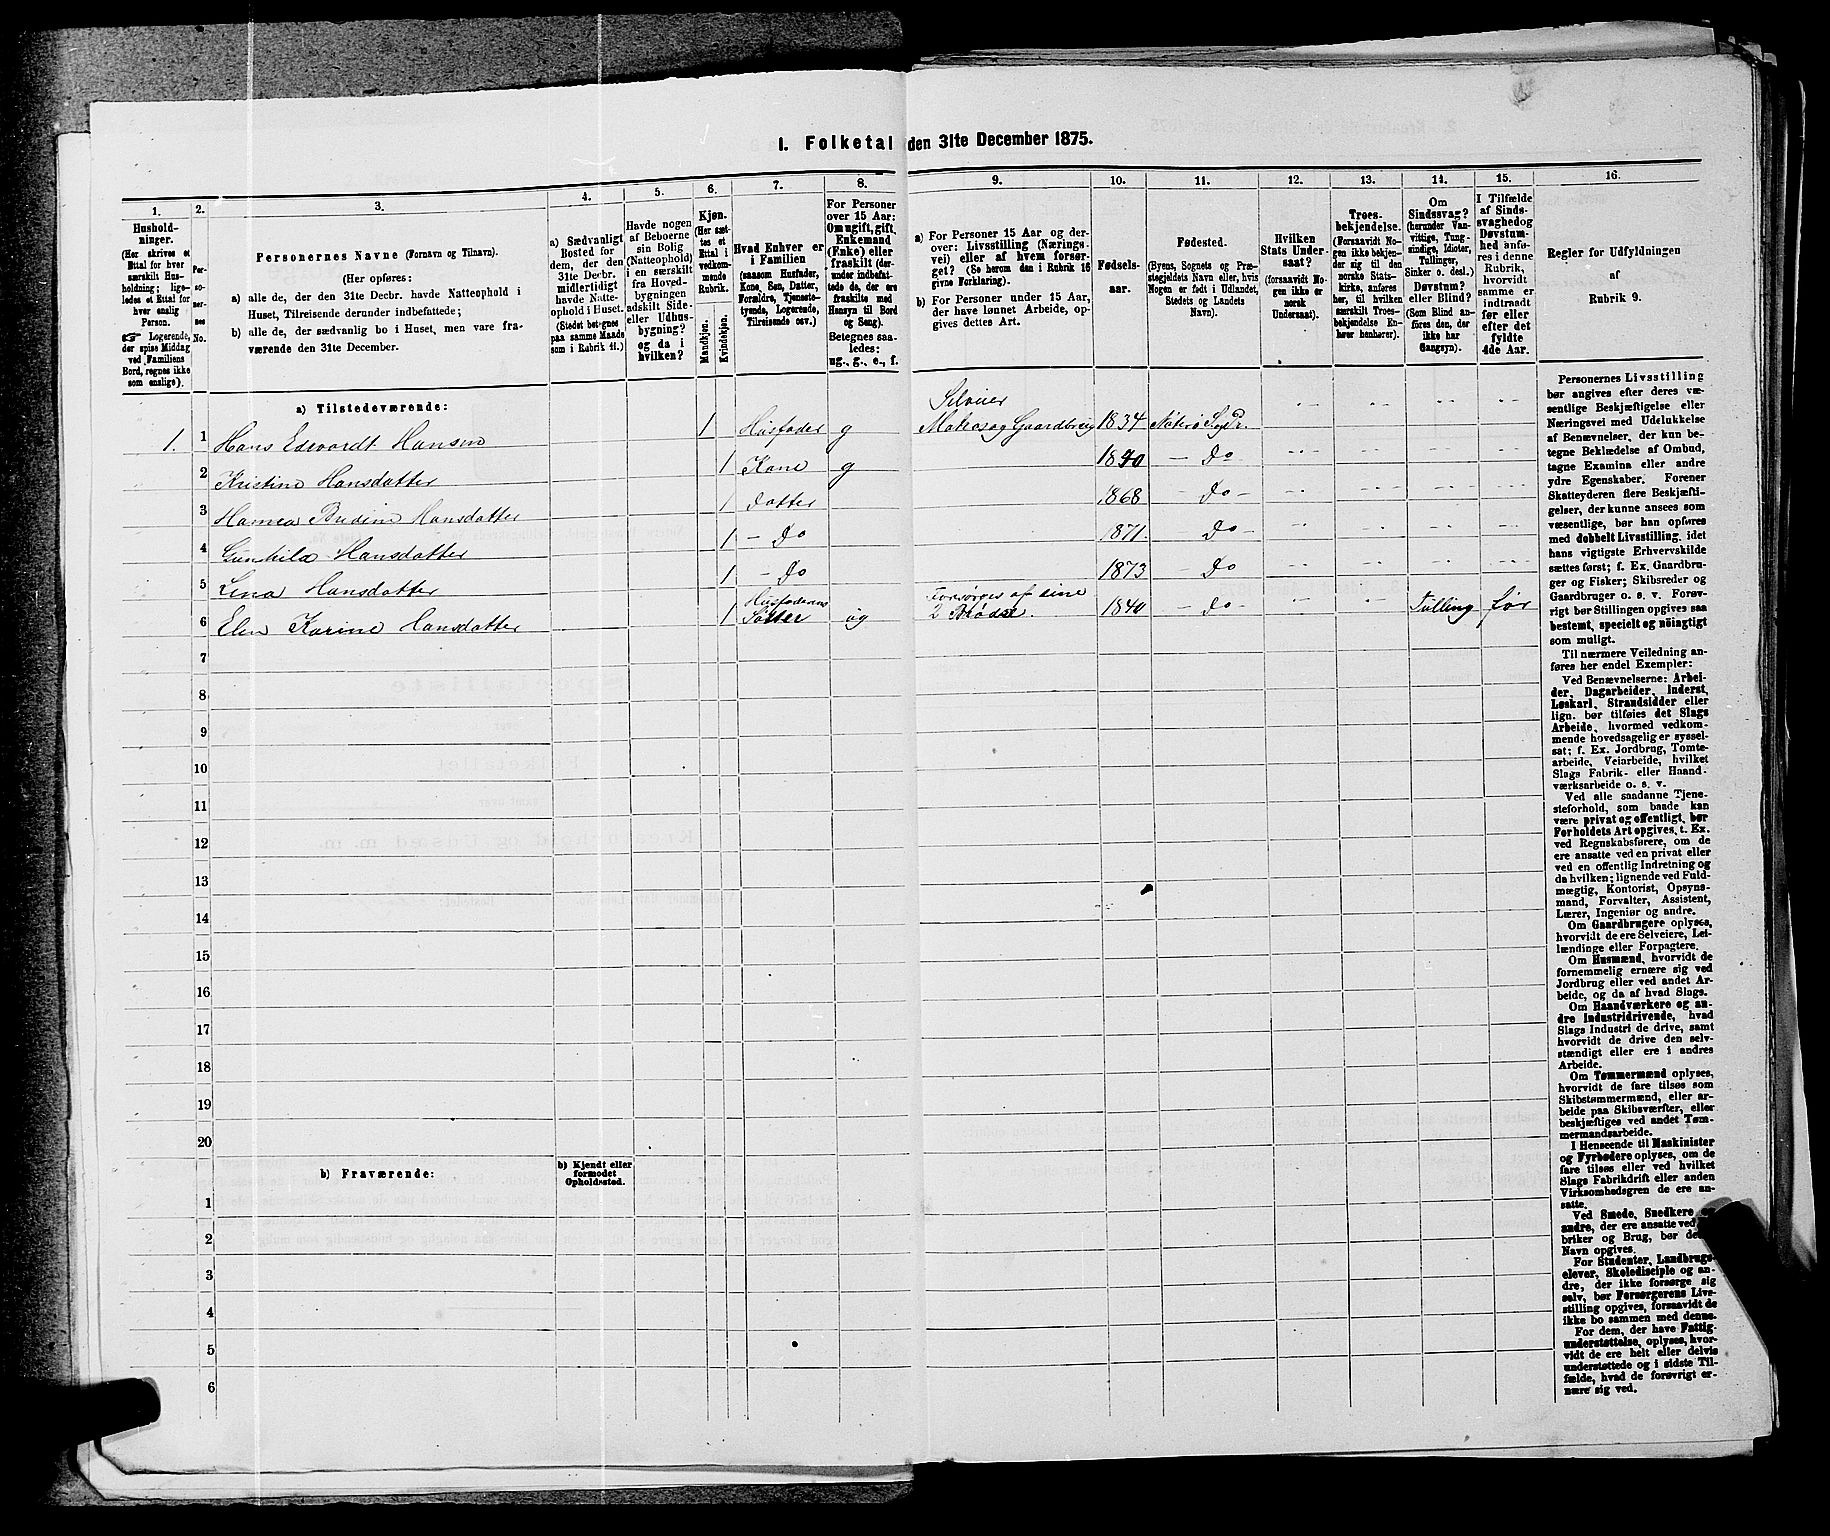 I. Folketal den 31te December 1875.
1. 2. 3. 4. 5. 6. 7. 8. 9. 10. 11. 12. 13. 14. 15. 16.
Hushold-
ninger.
(Her skrives et
Ettal for hver
særskilt Hus-
holdning; lige-
ledes et Ettal for
hver enslig
Person.
☞ Logerende,
der spise Middag
ved Familiens
Bord, regnes ikke
som enslige).
Per-
so-
ner-
nes
No.
Personernes Navne (Fornavn og Tilnavn).
(Her opføres:
a) alle de, der den 31te Decbr. havde Natteophold i
Huset, Tilreisende derunder indbefattede;
b) alle de, der sædvanlig bo i Huset, men vare fra-
værende den 31te December.
a) Sædvanligt
Bosted for
dem, der den
31te Decbr.
midlertidigt
havde Natte-
ophold i Huset.
(Stedet betegnes
paa samme Maade
som i Rubrik 11.)
Havde nogen
af Beboerne
sin Bolig
(Natteophold)
i en særskilt
fra Hoved-
bygningen
adskilt Side-
eller Udhus-
bygning?
og da i
hvilken?
Kjøn.
(Her sæt-
tes et
Ettal i
vedkom-
mende
Rubrik.
Mandkjøn.
Kvindekjøn.
Hvad Enhver er
i Familien
(saasom Husfader,
Kone, Søn, Datter,
Forældre, Tjeneste-
tyende, Logerende,
Tilreisende osv.)
For Personer
over 15 Aar:
Om ugift, gift,
Enkemand
(Enke) eller
fraskilt (der-
under indbefat-
tede de, der ere
fraskilte med
Hensyn til Bord
og Seng).
Betegnes saa-
ledes:
ug., g., e., f.
a) For Personer 15 Aar og der-
over: Livsstilling (Nærings-
vei) eller af hvem forsør-
get? (Se herom den i Rubrik 16
givne Forklaring).
b) For Personer under 15 Aar,
der have lønnet Arbeide, op-
gives dettes Art.
Fødsels-
aar.
Fødested.
(Byens, Sognets og Præ-
stegjeldets Navn eller, hvis
Nogen er født i Udlandet,
Stedets og Landets
Navn).
Hvilken
Stats Under-
saat?
(forsaavidt No-
gen ikke er
norsk
Undersaat).
Troes-
bekjendelse.
(Forsaavidt No-
gen ikke bekjen-
der sig til den
norske Stats-
kirke, anføres
her, til hvilken
særskilt Troes-
bekjendelse En-
hver henhører).
Om
Sindssvag?
(herunder Van-
vittige, Tung-
sindige, Idioter,
Tullinger,
Sinker o. desl.)
Døvstum?
eller Blind?
(Som Blind an-
føres den, der
ikke har
Gangsyn).
I Tilfælde
af Sinds-
svaghed og
Døvstum-
hed anfø-
res i denne
Rubrik,
hvorvidt
samme er
indtraadt
før eller
efter det
fyldte
4de Aar.
Regler for Udfyldningen
af
Rubrik 9.
a) Tilstedeværende:
Selveier
1. 1 Hans Edvardt Hansen 1 Husfader g Matros og Gaardbrug 1834 Nøterø
2 Kristine Hansdatter 1 Kone g 1840 – Do
3 Bredine Hansdatter 1 Datter 1868 – Do –
4 Gunhild Hansdatter 1 – Do 1871. – Do –
5 Lena Hansdatter 1 – Do 1873 – Do
6 Elen Karine Hansdatter 1 Husfaderens Søster ug Forsørges af sine 2 Brødre. 1840 – Do – Tulling før
7
8
9
10
11
12
13
14
15
16
17
18
19
20
b) Fraværende:
b) Kjendt eller
formodet
Opholdssted.
1
2
3
4
5
6
Personernes Livsstilling
bør angives efter deres væ-
sentlige Beskjæftigelse eller
Næringsvei med Udelukkelse
af Benævnelser, der kun be-
tegne Beklædelse af Ombud,
tagne Examina eller andre
ydre Egenskaber. Forener
Skatteyderen flere Beskjæfti-
gelser, der kunne ansees som
væsentlige, bør han opføres
med dobbelt Livsstilling, idet
hans vigtigste Erhvervskilde
sættes først; f. Ex. Gaardbru-
ger og Fisker; Skibsreder og
Gaardbruger o. s. v. Forøv-
rigt bør Stillingen opgives saa
bestemt, specielt og nøiagtigt
som muligt.
Til nærmere Veiledning an-
føres her endel Exempler:
Ved Benævnelserne: Arbei-
der, Dagarbeider, Inderst,
Løskarl, Strandsidder eller
lign. bør tilføies det Slags
Arbeide, hvormed vedkom-
mende hovedsagelig er syssel-
sat; f. Ex. Jordbrug, Tomte-
arbeide, Veiarbeide, hvilket
Slags Fabrik- eller Haand-
værksarbeide o. s. v.
Ved alle saadanne Tjene-
steforhold, som baade kan
være privat og offentligt, bør
Forholdets Art opgives, t. Ex.
ved Regnskabsførere, om de
ere ansatte ved en privat eller
ved en offentlig Indretning og
da hvilken; lignende ved Fuld-
mægtig, Kontorist, Opsyns-
mand, Forvalter, Assistent,
Lærer, Ingeniør og andre.
Om Gaardbrugere oplyses,
hvorvidt de ere Selveiere, Lei-
lændinge eller Forpagtere.
Om Husmænd, hvorvidt de
fornemmelig ernære sig ved
Jordbrug eller ved andet Ar-
beide, og da af hvad Slags.
Om Haandværkere og an-
dre Industridrivende, hvad
Slags Industri de drive, samt
hvorvidt de drive den selv-
stændigt eller ere i andres
Arbeide.
Om Tømmermænd oplyses,
hvorvidt de fare tilsøs som
Skibstømmermænd, eller ar-
beide paa Skibsværfter, eller
beskjæftiges ved andet Tøm-
mermandsarbeide.
I Henseende til Maskinister
og Fyrbødere oplyses, om de
fare tilsøs eller ved hvilket
Slags Fabrikdrift eller anden
Virksomhedsgren de ere an-
satte.
Ved Smede, Snedkere
andre, der ere ansatte ved
briker og Brug, bør de
Navn opgives.
For Studenter, Landbrugs-
elever, Skoledisciple og an-
dre, der ikke forsørge sig
selv, bør Forsørgerens Livs-
stilling opgives, forsaavidt de
ikke bo sammen med denne.
For dem, der have Fattig-
understøttelse, oplyses, hvor-
vidt de ere helt eller delvis
understøttede og i sidste Til-
fælde, hvad de forøvrigt er-
nære sig ved.